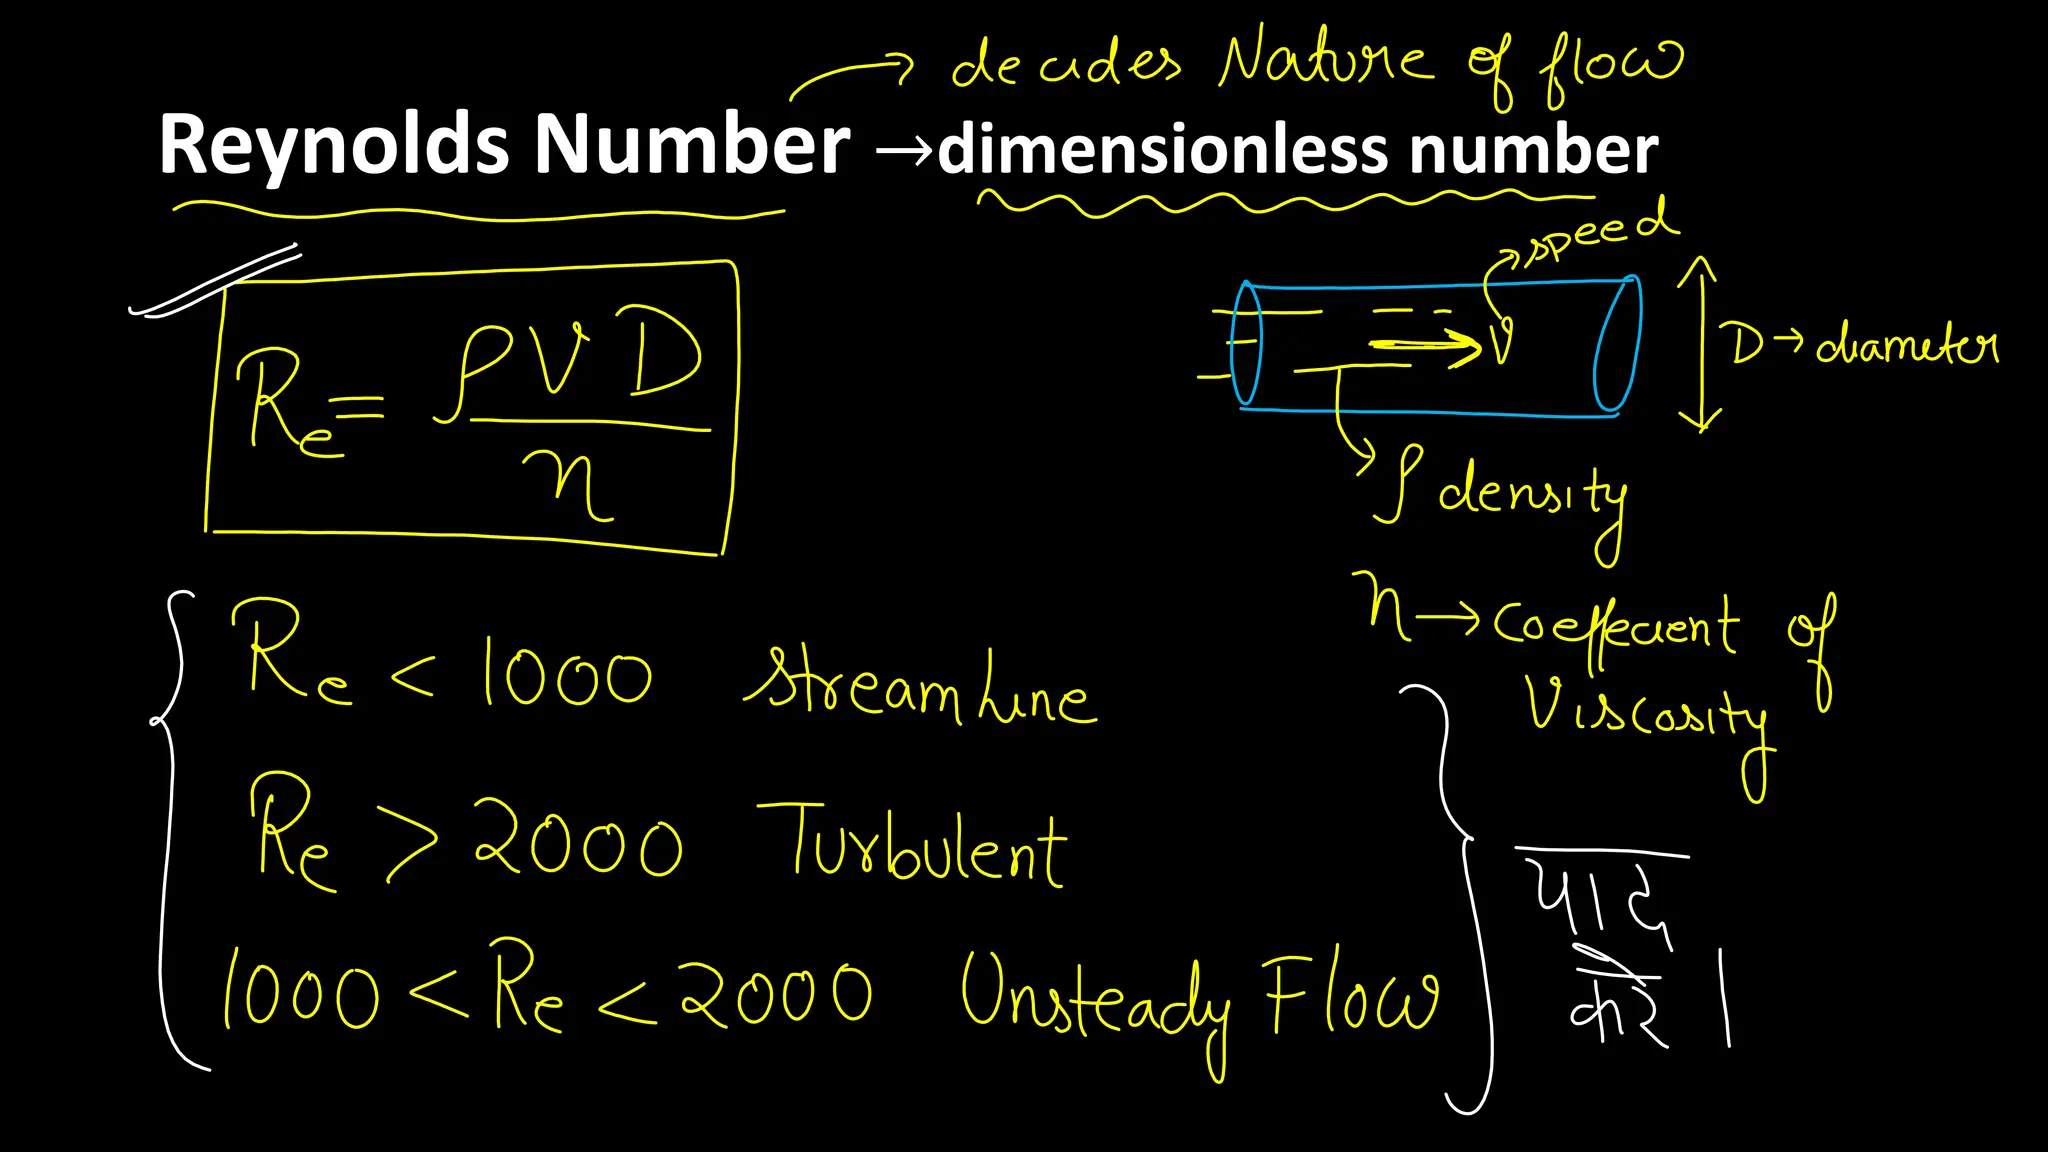 → decides Nature of flow
Reynolds Number →dimensionless number
→ speed
Re = ρVD/η
V
D → diameter
→ ρ density
η → Coeffecient of
Viscosity
Re < 1000 streamline
Re > 2000 Turbulent
1000 < Re < 2000 Unsteady Flow
याद
करें ।